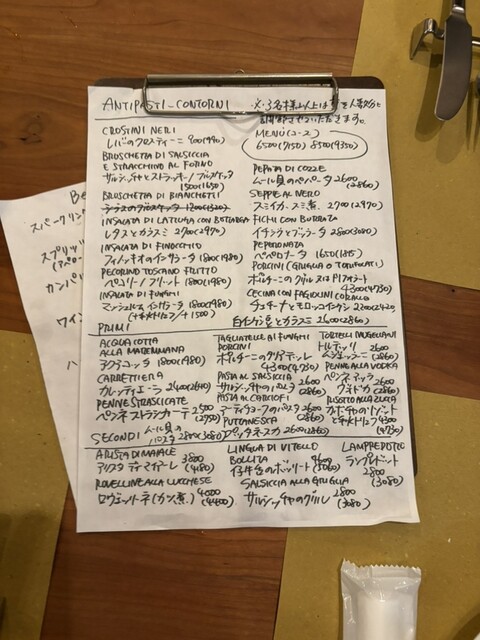 ANTIPASTI-CONTORNI
※3名様以上は
いただきます。
MENU(コース)
6500(7150) 8500(9350)
CROSTINI NERI
レバーのクロスティーニ 900(990)
BROSCHETTA DI SALSICCIA
E STRACCHINO AL FORNO
サルシッチャとストラッキーノブルスケッタ
1500(1650)
BROSCHETTA DI BIANCHETTI
INSALATA DI LATTUGA CON BOTTARGA
レタスとカラスミ 2700(2970)
INSALATA DI FINOCCHIO
フィノッキオのインサラータ 1800(1980)
PECORINO TOSCANO FRITTO
ペコリーノフリット 1800(1980)
INSALATA DI FUNGHI
マッシュルームインサラータ 1800(1980)
+1500
PEPATA DI COZZE
ムール貝のペパータ 2600
(2860)
SEPPIE AL NERO
スミイカ、スミ煮。 2700(2970)
FICHI CON BURRATA
イチジクとブッラータ 2800(3080)
PEPERONATA
ペペロナータ 1650(1815)
PORCINI (GRIGLIA O TRIFOLATI)
ポルチーニのグリル又はトリフォラート
4300(4730)
CECINA CON FAGIOLINI CORALLO
白インゲン豆とカラスミ 2600(2860)
PRIMI
ACQUA COTTA
ALLA MAREMMANA
アクアコッタ 1800(1980)
CARRETTIERA
カレッティエーラ 2400(2640)
PENNE STRASCICATE
ペンネストラシカーテ
TAGLIATELLE AI FUNGHI
PORCINI
ポルチーニのタリアテッレ
4300(4730)
PASTA AL SALSICCIA
サルシッチャのパスタ 2600
(2860)
PASTA AL CARCIOFI
アーティチョークのパスタ 2600
(2860)
PUTTANESCA
プッタネスカ 2600(2860)
TORTELLI MUGELLANI
トルテッリ 2600
(2860)
PENNE ALLA VODKA
ペンネアッラ 2600
ウオトカ (2860)
RISOTTO ALLA ZUCCA
カボチャのリゾット
4300
(4730)
ムール貝の
パスタ 2800(3080)
SECONDI
ARISTA DI MAIALE 3800
アリスタディマイアーレ (4180)
ROVELLINE ALLA LUCCHESE
4000
ロヴェッリーネ(カツ煮) (4400)
LINGUA DI VITELLO
BOLLITA 4600
仔牛舌のボッリート (5060)
SALSICCIA ALLA GRIGLIA
サルシッチャのグリル 2800
(3080)
LAMPREDOTTO
ランプレドット
2800
(3080)
スパークリン
スプリッツ
カンパリ
ワイン